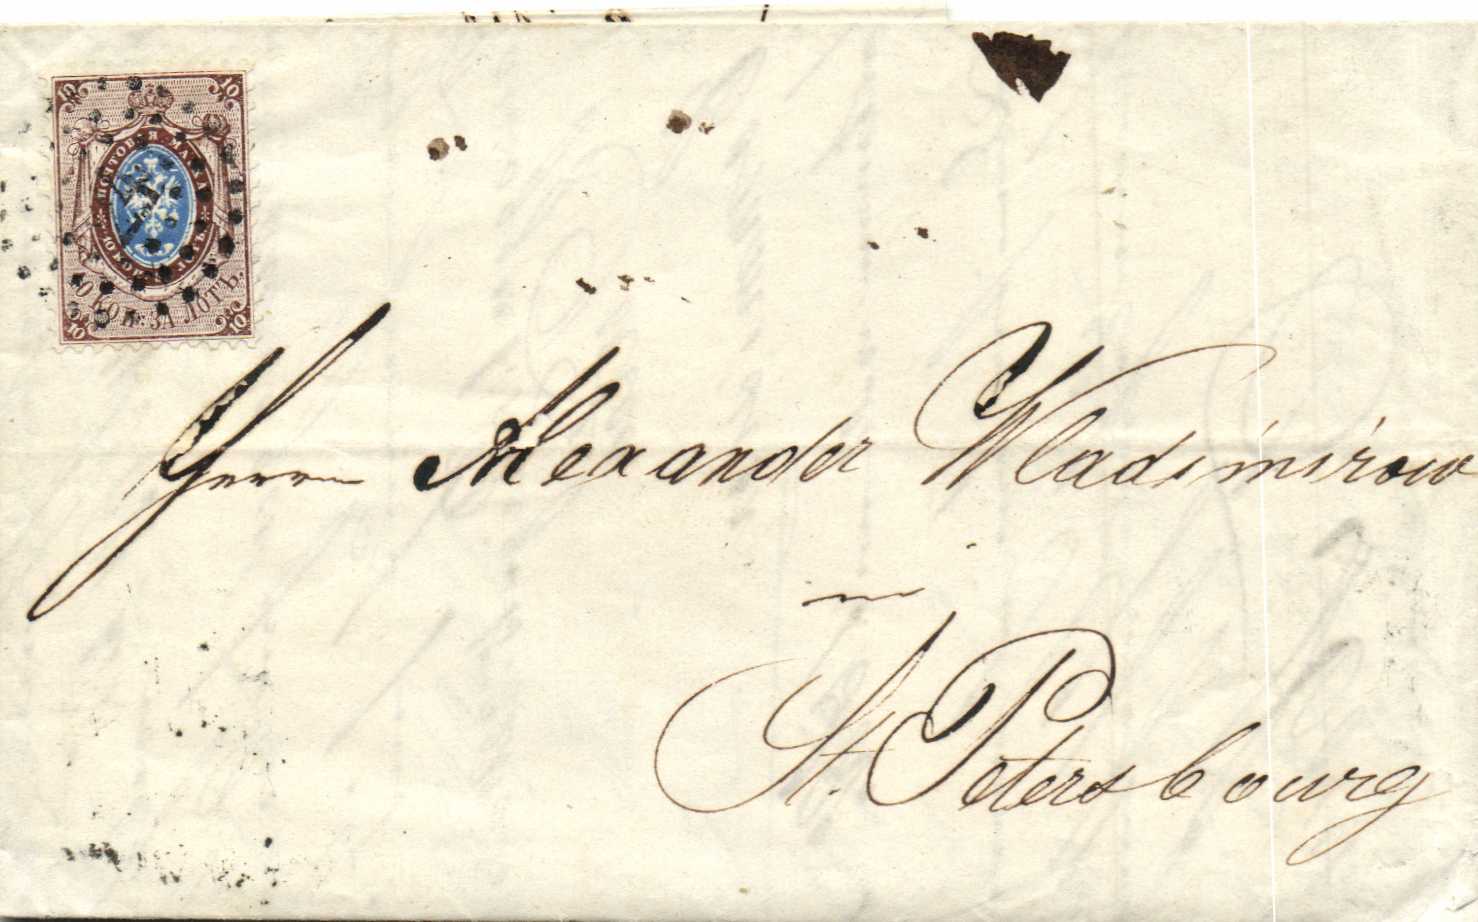 10 10
ПОЧТОВАЯ МАРКА
10 КОП. ЗА ЛОТЪ
10 КОП: ЗА ЛОТЪ.
10 10
Herrn Alexander Wladimirow
in
St. Petersbourg